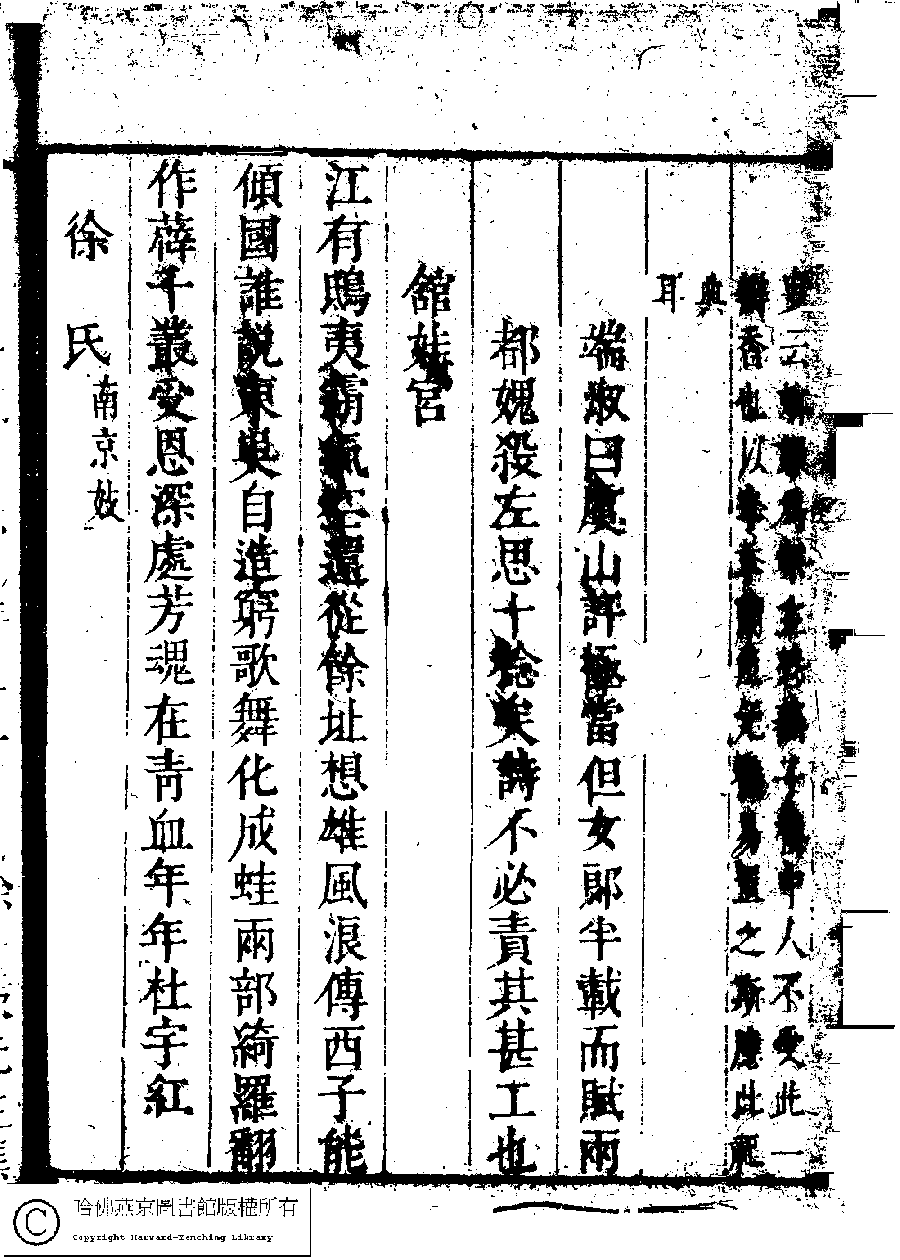 人不受此一
之
典
耳
端淑曰虞山評極當但女郞半載而賦兩
都媿殺左思十稔矣詩不必責其甚工也
舘娃宮
江有鴟夷霸氣空還從餘址想雄風浪傳西子能
傾國誰説東吳自造窮歌舞化成蛙兩部綺羅翻
作薜千叢受恩深處芳魂在青血年年杜宇紅
徐氏南京妓
哈佛燕京圖書館版權所有
Copyright Harvard-Yenching Library